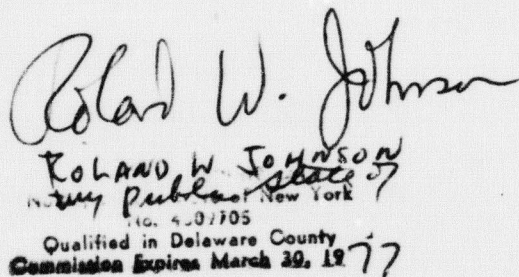 Roland W. Johnson
ROLAND W JOHNSON
Public State of
New York
Qualified in Delaware County
Commission Expires March 30, 1977